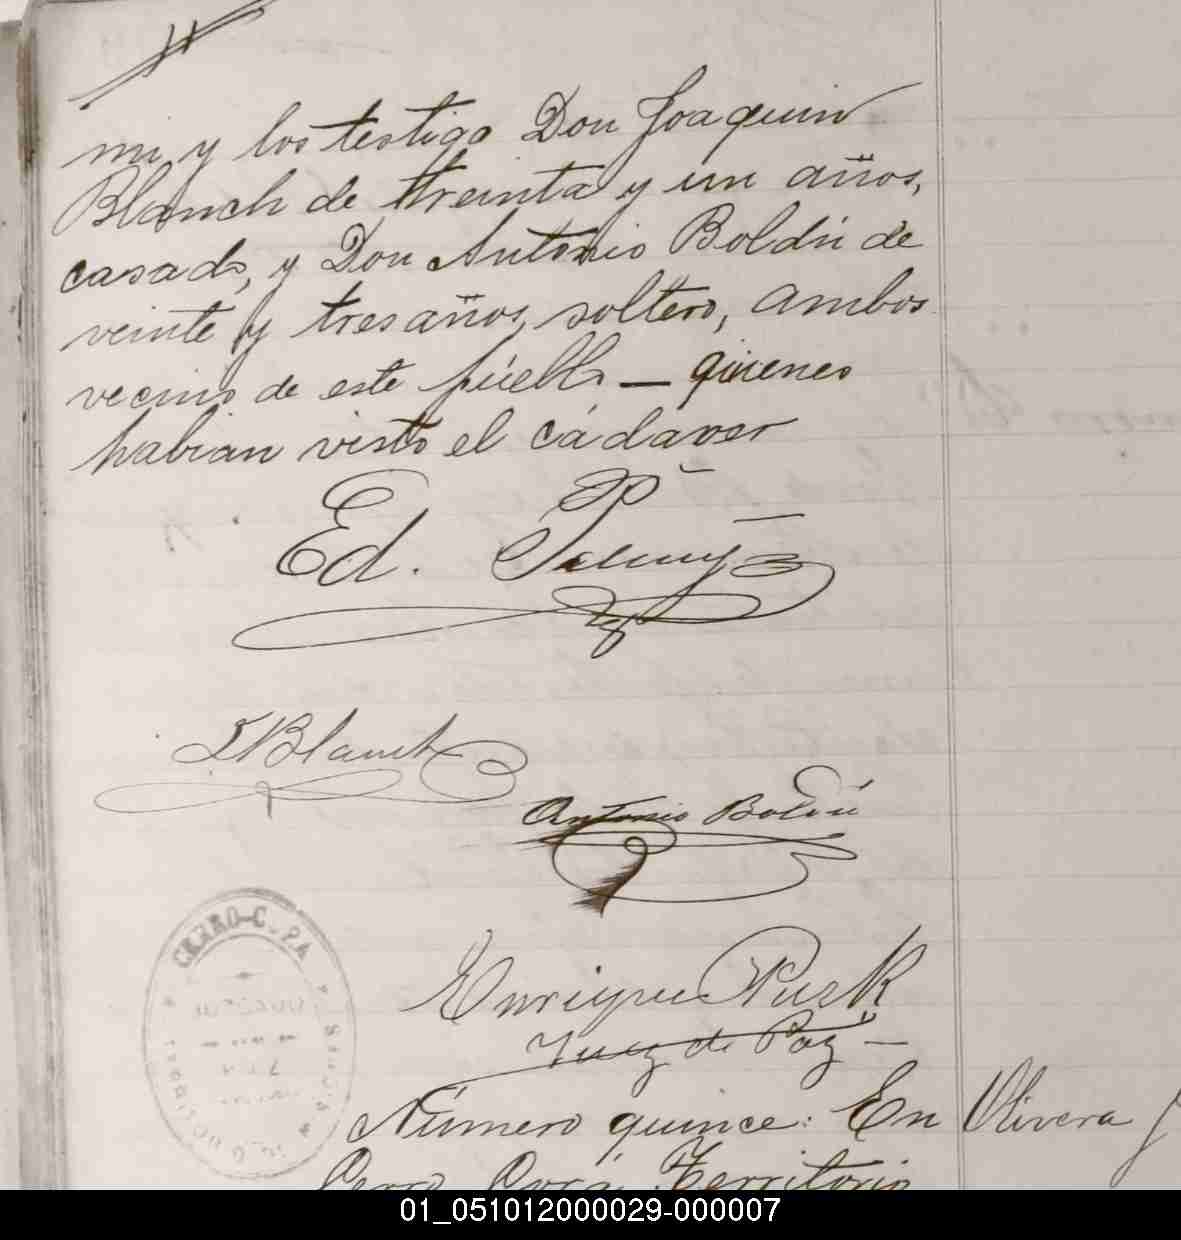 mi, y los testigo Don Joaquin
Blanch de treinta y un años,
casado, y Don Antonio Boldú de
veinte y tres años, soltero, ambos
vecino de este púeblo — quienes
habian visto el cádaver
Ed.
Blanch
Antonio Boldú
CERRO-C
Enrique
Juez de Paz —
Número quince: En Olivera
Cerro Corá, Territorio
01_051012000029-000007